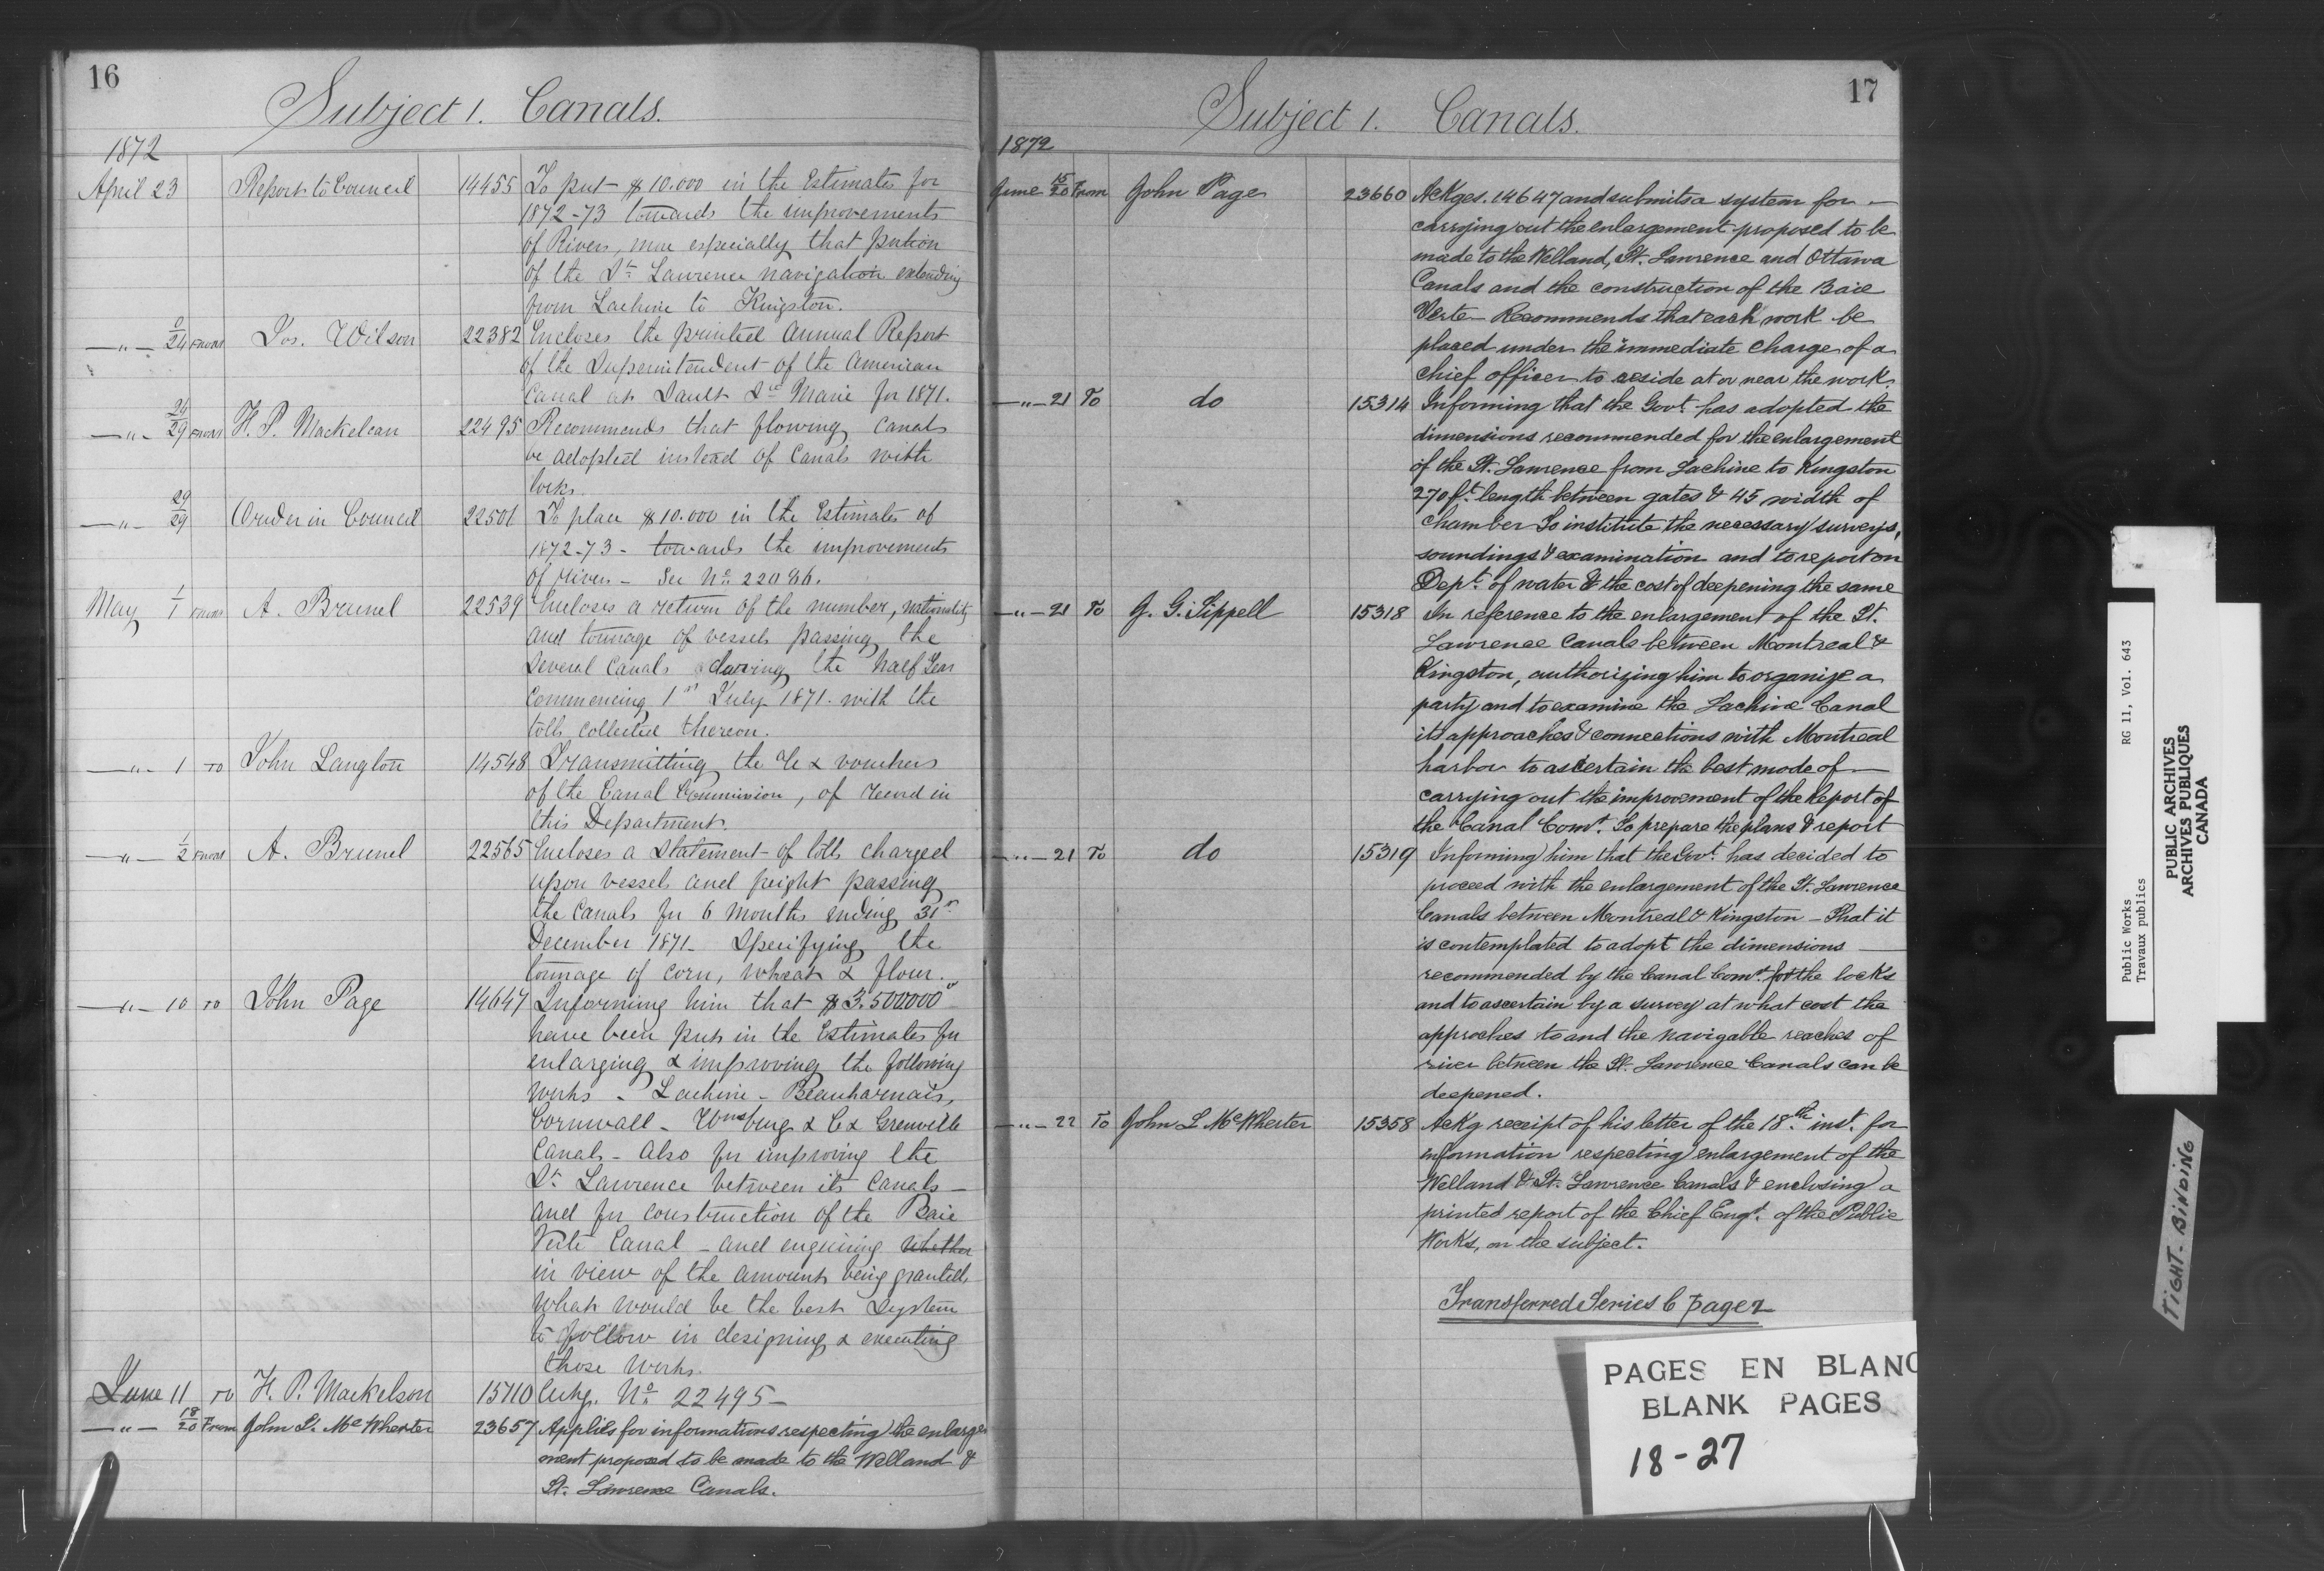 16
Subject 1. Canals.
1872
April 23 Report to Council 14455 To put $10.000 in the Estimates for
1872-73 towards the improvements
of Rivers, more especially that portion
of the St. Lawrence navigation extending
from Lachine to Kingston.
—"— 24 From Jos. Wilson 22382 Encloses the printed Annual Report
of the Superintendent of the American
Canal at Sault Ste Marie for 1871.
—"— 24/29 From H. P. Mackelcan 22495 Recommends that flowing Canals
be adopted instead of Canals with
locks.
—"— 29/29 Order in Council 22501 To place $10.000 in the Estimates of
1872-73 - towards the improvements
of rivers - See No. 22096.
May 1/1 From A. Brunel 22539 Encloses a return of the number, nationality
and tonnage of vessels passing the
several Canals during the half Year
Commencing 1st July 1871. with the
tolls collected thereon.
—"— 1 To John Langton 14548 Transmitting the % & vouchers
of the Canal Commission, of record in
this Department.
—"— 1/2 From A. Brunel 22565 Encloses a Statement of tolls charged
upon vessels and freight passing
the Canals for 6 months ending 31st
December 1871 - Specifying the
tonnage of corn, wheat & flour.
—"— 10 To John Page 14647 Informing him that $3.500000
have been put in the Estimates for
enlarging & improving the following
works - Lachine - Beauharnais,
Cornwall - Wmsburg & C & Grenville
Canals - Also for improving the
St. Lawrence between its Canals -
and for construction of the Baie
Verte Canal - and enquiring whether
in view of the amount being granted
What would be the best System
to follow in designing & executing
those Works.
June 11 To H. P. Mackelson 15110 Ackg. No. 22495 -
—"— 18/20 From John L. McWherter 23657 Applies for informations respecting the enlarge
ment proposed to be made to the Welland &
St. Lawrence Canals.
17
Subject 1. Canals.
1872
June 15/20 From John Page 23660 Ackges. 14647 and submits a system for —
carrying out the enlargement proposed to be
made to the Welland, St. Lawrence and Ottawa
Canals and the construction of the Baie
Verte - Recommends that each work be
placed under the immediate charge of a
chief officer to reside at or near the work.
—"— 21 To do 15314 Informing that the Govt. has adopted the
dimensions recommended for the enlargement
of the St. Lawrence from Lachine to Kingston
270 ft. length between gates & 45 width of
chamber To institute the necessary surveys,
soundings & examination and to report on
Dept. of water & the cost of deepening the same
—"— 21 To J. G. Sippell 15318 In reference to the enlargement of the St.
Lawrence Canals between Montreal &
Kingston, authorizing him to organize a
party and to examine the Lachine Canal
its approaches & connections with Montreal
harbor to ascertain the best mode of —
carrying out the improvement of the Report of
the Canal Comt. To prepare the plans & report
—"— 21 To do 15319 Informing him that the Govt. has decided to
proceed with the enlargement of the St. Lawrence
Canals between Montreal & Kingston - That it
is contemplated to adopt the dimensions —
recommended by the Canal Comt. for the locks
and to ascertain by a survey at what cost the
approches to and the navigable reaches of
river between the St. Lawrence Canals can be
deepened.
—"— 22 To John L McWherter 15358 Ackg receipt of his letter of the 18th inst. for
information respecting enlargement of the
Welland & St. Lawrence Canals & enclosing a
printed report of the Chief Engr. of the Public
Works, on the subject.
Transferred Series 6 page 2
PAGES EN BLANC
BLANK PAGES
18-27
Public Works RG 11, Vol. 643
Travaux publics
PUBLIC ARCHIVES
ARCHIVES PUBLIQUES
CANADA
TIGHT BINDING